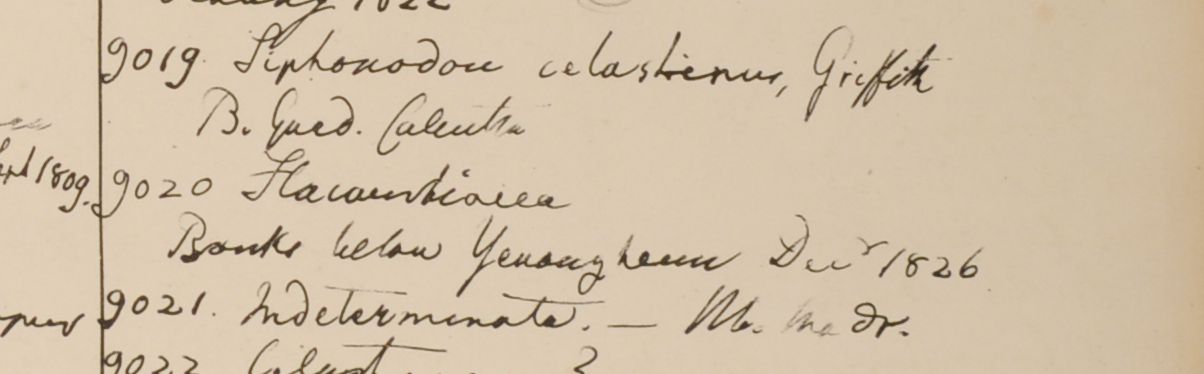 1822
9019 Siphonodon celastrinus, Griffith
B. Gard. Calcutta
1809. 9020 Flacourtiacea
Banks below Yenangheun Decr 1826
9021. Indeterminata. — dr.
9022 ?